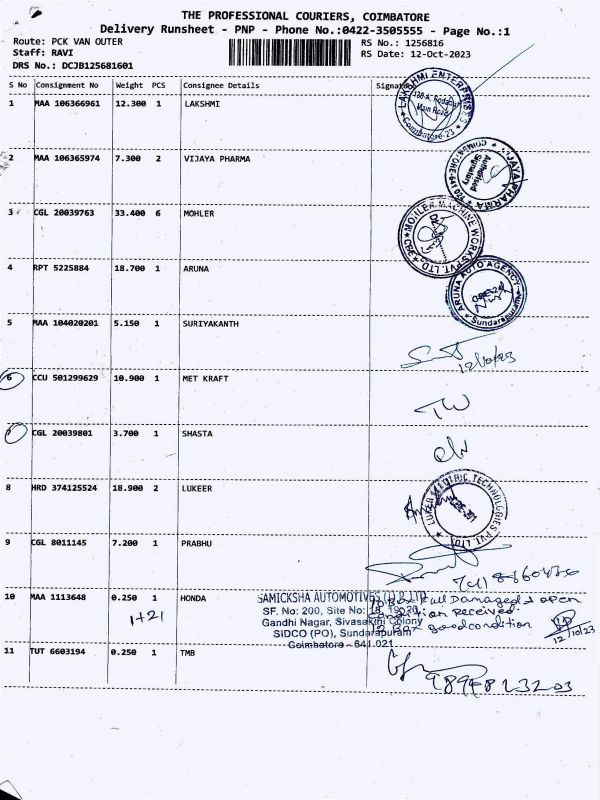 THE PROFESSIONAL COURIERS, COIMBATORE
Delivery Runsheet - PNP - Phone No.:0422-3505555 - Page No.:1
Route: PCK VAN OUTER
RS No.: 1256816
Staff: RAVI
RS Date: 12-Oct-2023
DRS No.: DCJB125681601
S No Consignment No Weight PCS Consignee Details Signature
1 MAA 106366961 12.300 1 LAKSHMI
LAKSHMI ENTERPRISES
Main Road
Coimbatore-23
2 MAA 106365974 7.300 2 VIJAYA PHARMA
VIJAYA PHARMA
Authorised
Signatory
3 CGL 20039763 33.400 6 MOHLER
MOHLER MACHINE WORKS PVT. LTD.
4 RPT 5225884 18.700 1 ARUNA
ARUNA AUTO AGENCY
5 MAA 104020201 5.150 1 SURIYAKANTH
12/10/23
6 CCU 501299629 10.900 1 MET KRAFT
7 CGL 20039801 3.700 1 SHASTA
8 HRD 374125524 18.900 2 LUKEER
ELECTRIC TECHNOLOGIES PVT. LTD.
9 CGL 8011145 7.200 1 PRABHU
10 MAA 1113648 0.250 1 HONDA
1+21
SAMICKSHA AUTOMOTIVES (I) P LTD
SF. No: 200, Site No: 18, 19, 20,
Gandhi Nagar, Sivasakthi Colony
SIDCO (PO), Sundarapuram
Coimbatore - 641 021
Damaged & open
condition received
2 Box good condition
12/10/23
11 TUT 6603194 0.250 1 TMB